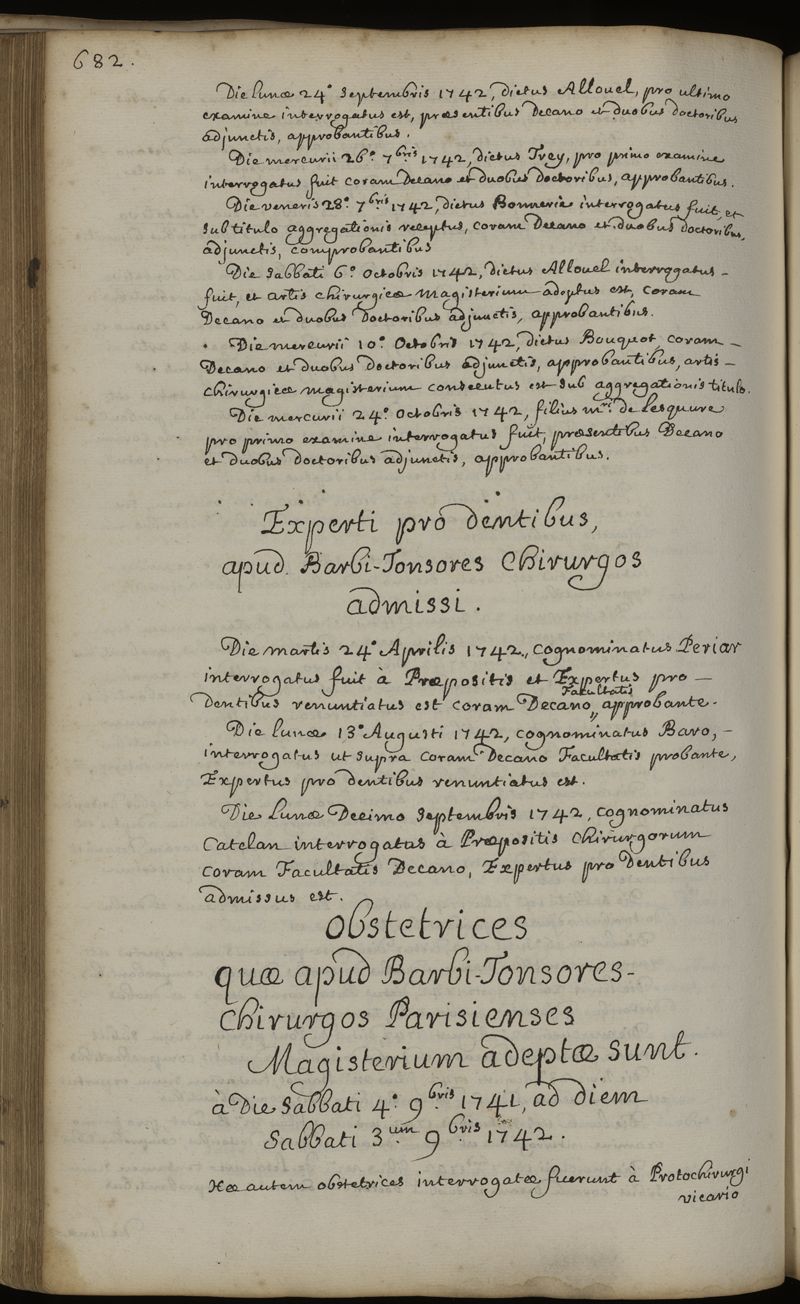 682.
Die lunæ 24° Septembris 1742, dictus Allouel, pro ultimo
examine interrogatus est, præsentibus Decano et duobus doctoribus
adjunctis, approbantibus.
Die mercurii 26° 7bris 1742, dictus Trey, pro primo examine
interrogatus fuit coram Decano et duobus Doctoribus, approbantibus.
Die veneris 28° 7bris 1742, dictus Bonnerie interrogatus fuit, et
sub titulo aggregationis receptus, coram Decano et duobus doctoribus,
adjunctis, comprobantibus
Die Sabbati 6° Octobris 1742, dictus Allouel interrogatus -
fuit, et artis chirurgicæ magisterium adeptus est, coram
Decano et duobus Doctoribus adjunctis, approbantibus.
Die mercurii 10° Octobris 1742, dictus Bouquot, coram -
Decano et duobus doctoribus adjunctis, approbantibus, artis -
chirurgicæ magisterium consecutus est sub aggregationis titulo.
Die mercurii 24° Octobris 1742, filius mri de Lesquure
pro primo examine interrogatus fuit, præsentibus Decano
et duobus doctoribus adjunctis, approbantibus.
Experti pro dentibus,
apud Barbi-Tonsores Chirurgos
admissi.
Die martis 24° Aprilis 1742, cognominatus Periar
interrogatus fuit à Præpositis et Expertus pro -
Facultatis
Dentibus renuntiatus est coram Decano,, approbante.
Die lunæ 13° Augusti 1742, cognominatus Baro, -
interrogatus ut supra coram Decano Facultatis probante,
Expertus pro dentibus renuntiatus est.
Die Lunæ Decimo Septembris 1742, cognominatus
Catelan interrogatus à Præpositis Chirurgorum
coram Facultatis Decano, Expertus pro Dentibus
admissus est.
Obstetrices
quæ apud Barbi-Tonsores-
Chirurgos Parisienses
Magisterium adeptæ sunt.
à Die Sabbati 4° 9bris 1741, ad diem
Sabbati 3um 9bris 1742.
Hæ autem obstetrices interrogatæ fuerunt à Protochirurgi
vicario